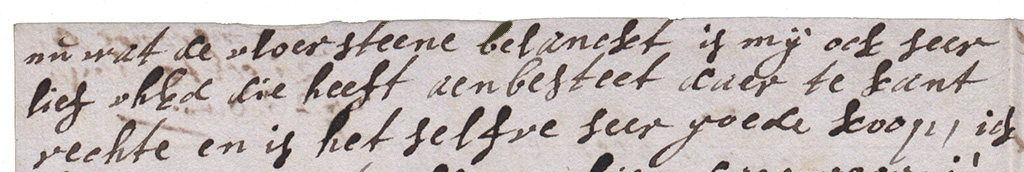 nu wat de vloersteene belanckt is mÿ ock seer
lief vhEd die heeft aenbesteet daer te kant
rechte en is het selfve seer goede koop, ick